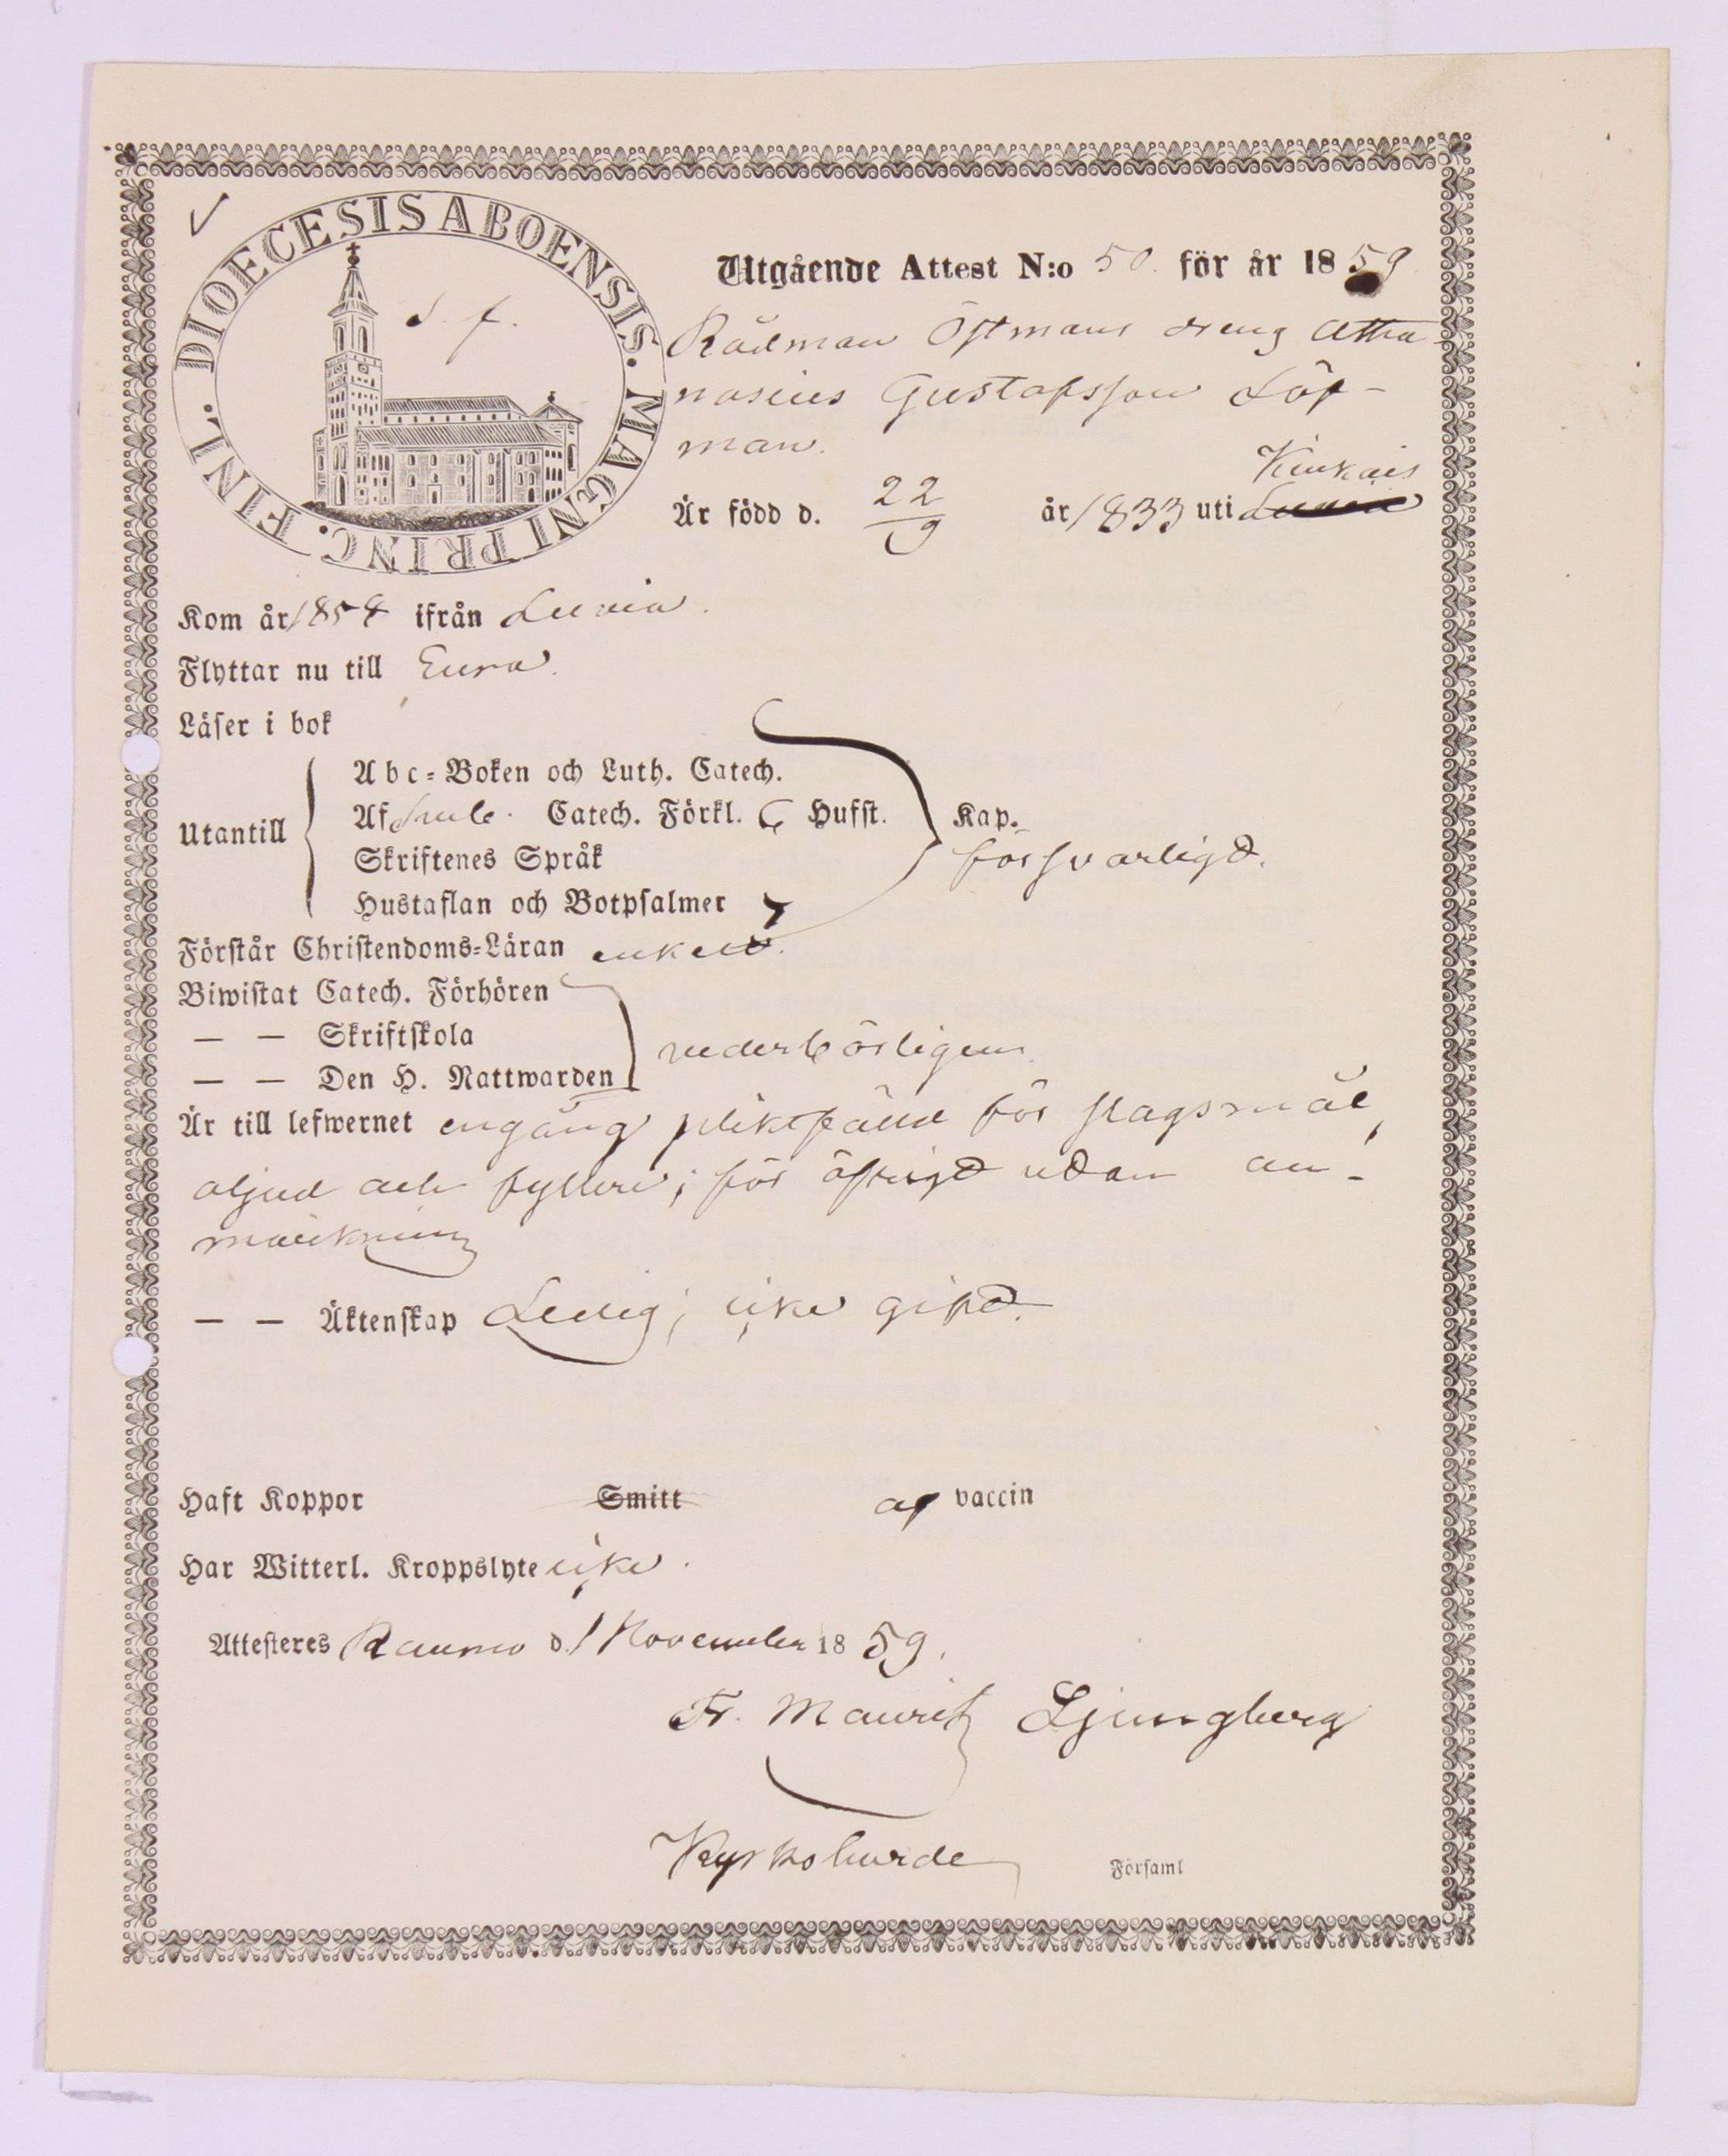 DIOECESIS ABOENSIS. MAGNI PRINC. FINL.
Utgående Attest N:o 50. för år 1859
Rådman Östmans dreng Atha-
nasius Gustafsson Löf-
man.
Kiukais
Är född d. 22/9 år 1833 uti Luvia
Kom år 1858 ifrån Luvia.
Flyttar nu till Eura.
Läser i bok
Utantill
Abc-Boken och Luth. Catech.
Af Catech. Förkl. Hufst. Kap.
försvarligt.
Skriftenes Språk
Hustaflan och Botpsalmer
Förstår Christendoms-Läran enkelt.
Biwistat Catech. Förhören
— — Skriftskola
vederbörligen.
— — Den H. Nattwarden
Är till lefwernet engång pliktfälld för slagsmål,
oljud och fylleri; för öfrigt utan an-
märkning
— — Äktenskap Ledig; icke gift.
Haft Koppor Smitt af vaccin
Har Witterl. Kroppslyte icke.
Attesteres Raumo d. 1 November 1859.
Fr. Mauritz Ljungberg
Kyrkoherde Församl